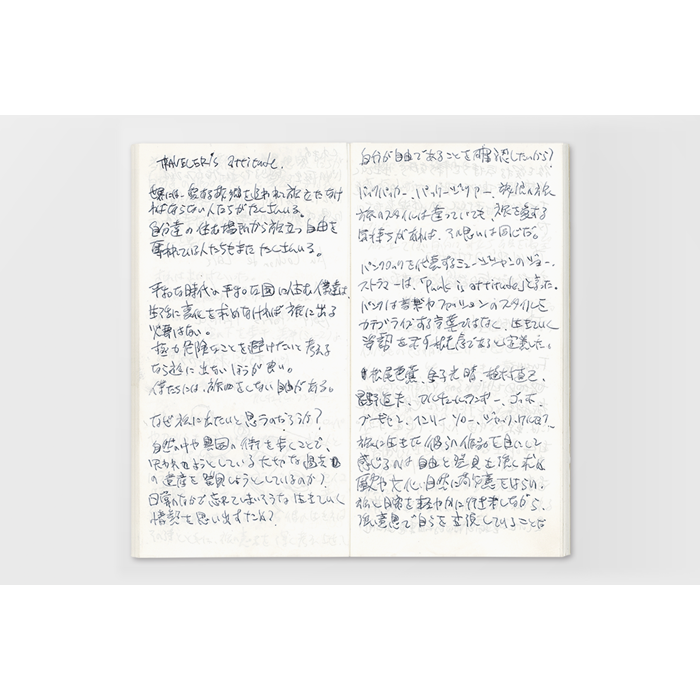 TRAVELER'S attitude.
世界には、愛する故郷を追われ旅立たなけ
ればならない人たちがたくさんいる。
自分達の住む場所から旅立つ自由を
奪われている人たちもまたたくさんいる。
平和な時代の平和な国に住む僕達は、
生活に変化を求めなければ旅に出る
必要はない。
極力危険なことを避けたいと考える
なら旅に出ないほうが良い。
僕たちには、旅をしない自由がある。
なぜ旅に出たいと思うのだろうか?
自然の中や異国の街を歩くことで、
失われようとしている大切な過去
の遺産を発見しようとしているのか?
日常のなかで忘れてしまいそうな生きていく
情熱を思い出すため?
自分が自由であることを確認したいから?
バックパッカー、パッケージツアー、放浪の旅
旅のスタイルは違っていても、旅を愛する
気持ちがあれば、その思いは同じだろ
パンクロックを代表するミュージシャンのジョー・
ストラマーは、「Punk is attitude」と言った。
パンクは音楽やファッションのスタイルを
カテゴライズする言葉ではなく、生きていく
姿勢を示す程度であると定義した。
松尾芭蕉、金子光晴、植村直己、
星野道夫、アルチュール・ランボー、ゴッホ、
ゴーギャン、ヘンリー・ソロー、ジャック・ケルアック。
旅に生きた彼らの作品を目にして
感じるのは自由と発見を強く求め
歴史や文化、自然に敬意をはらい、
旅と日常を軽やかに行き来しながら、
強い意思で自らを支援していることだ